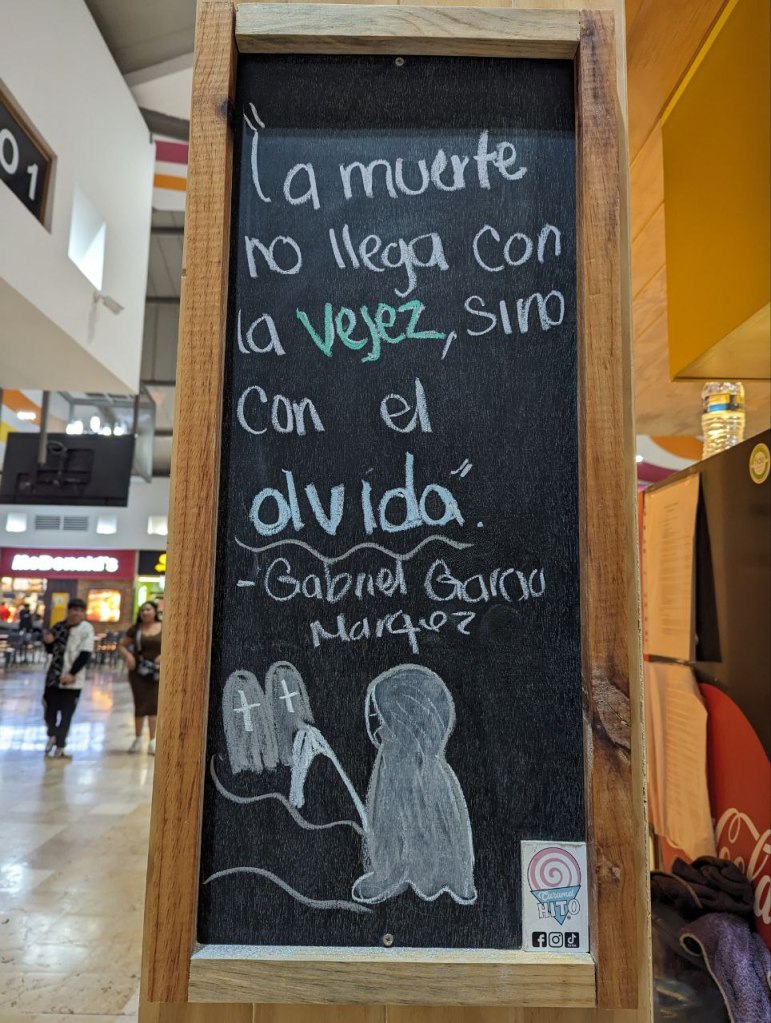 "la muerte
no llega con
la vejez, sino
con el
olvida".
- Gabriel Garcia
Marquez
Caramel
HITO
01
McDonald's
Coca